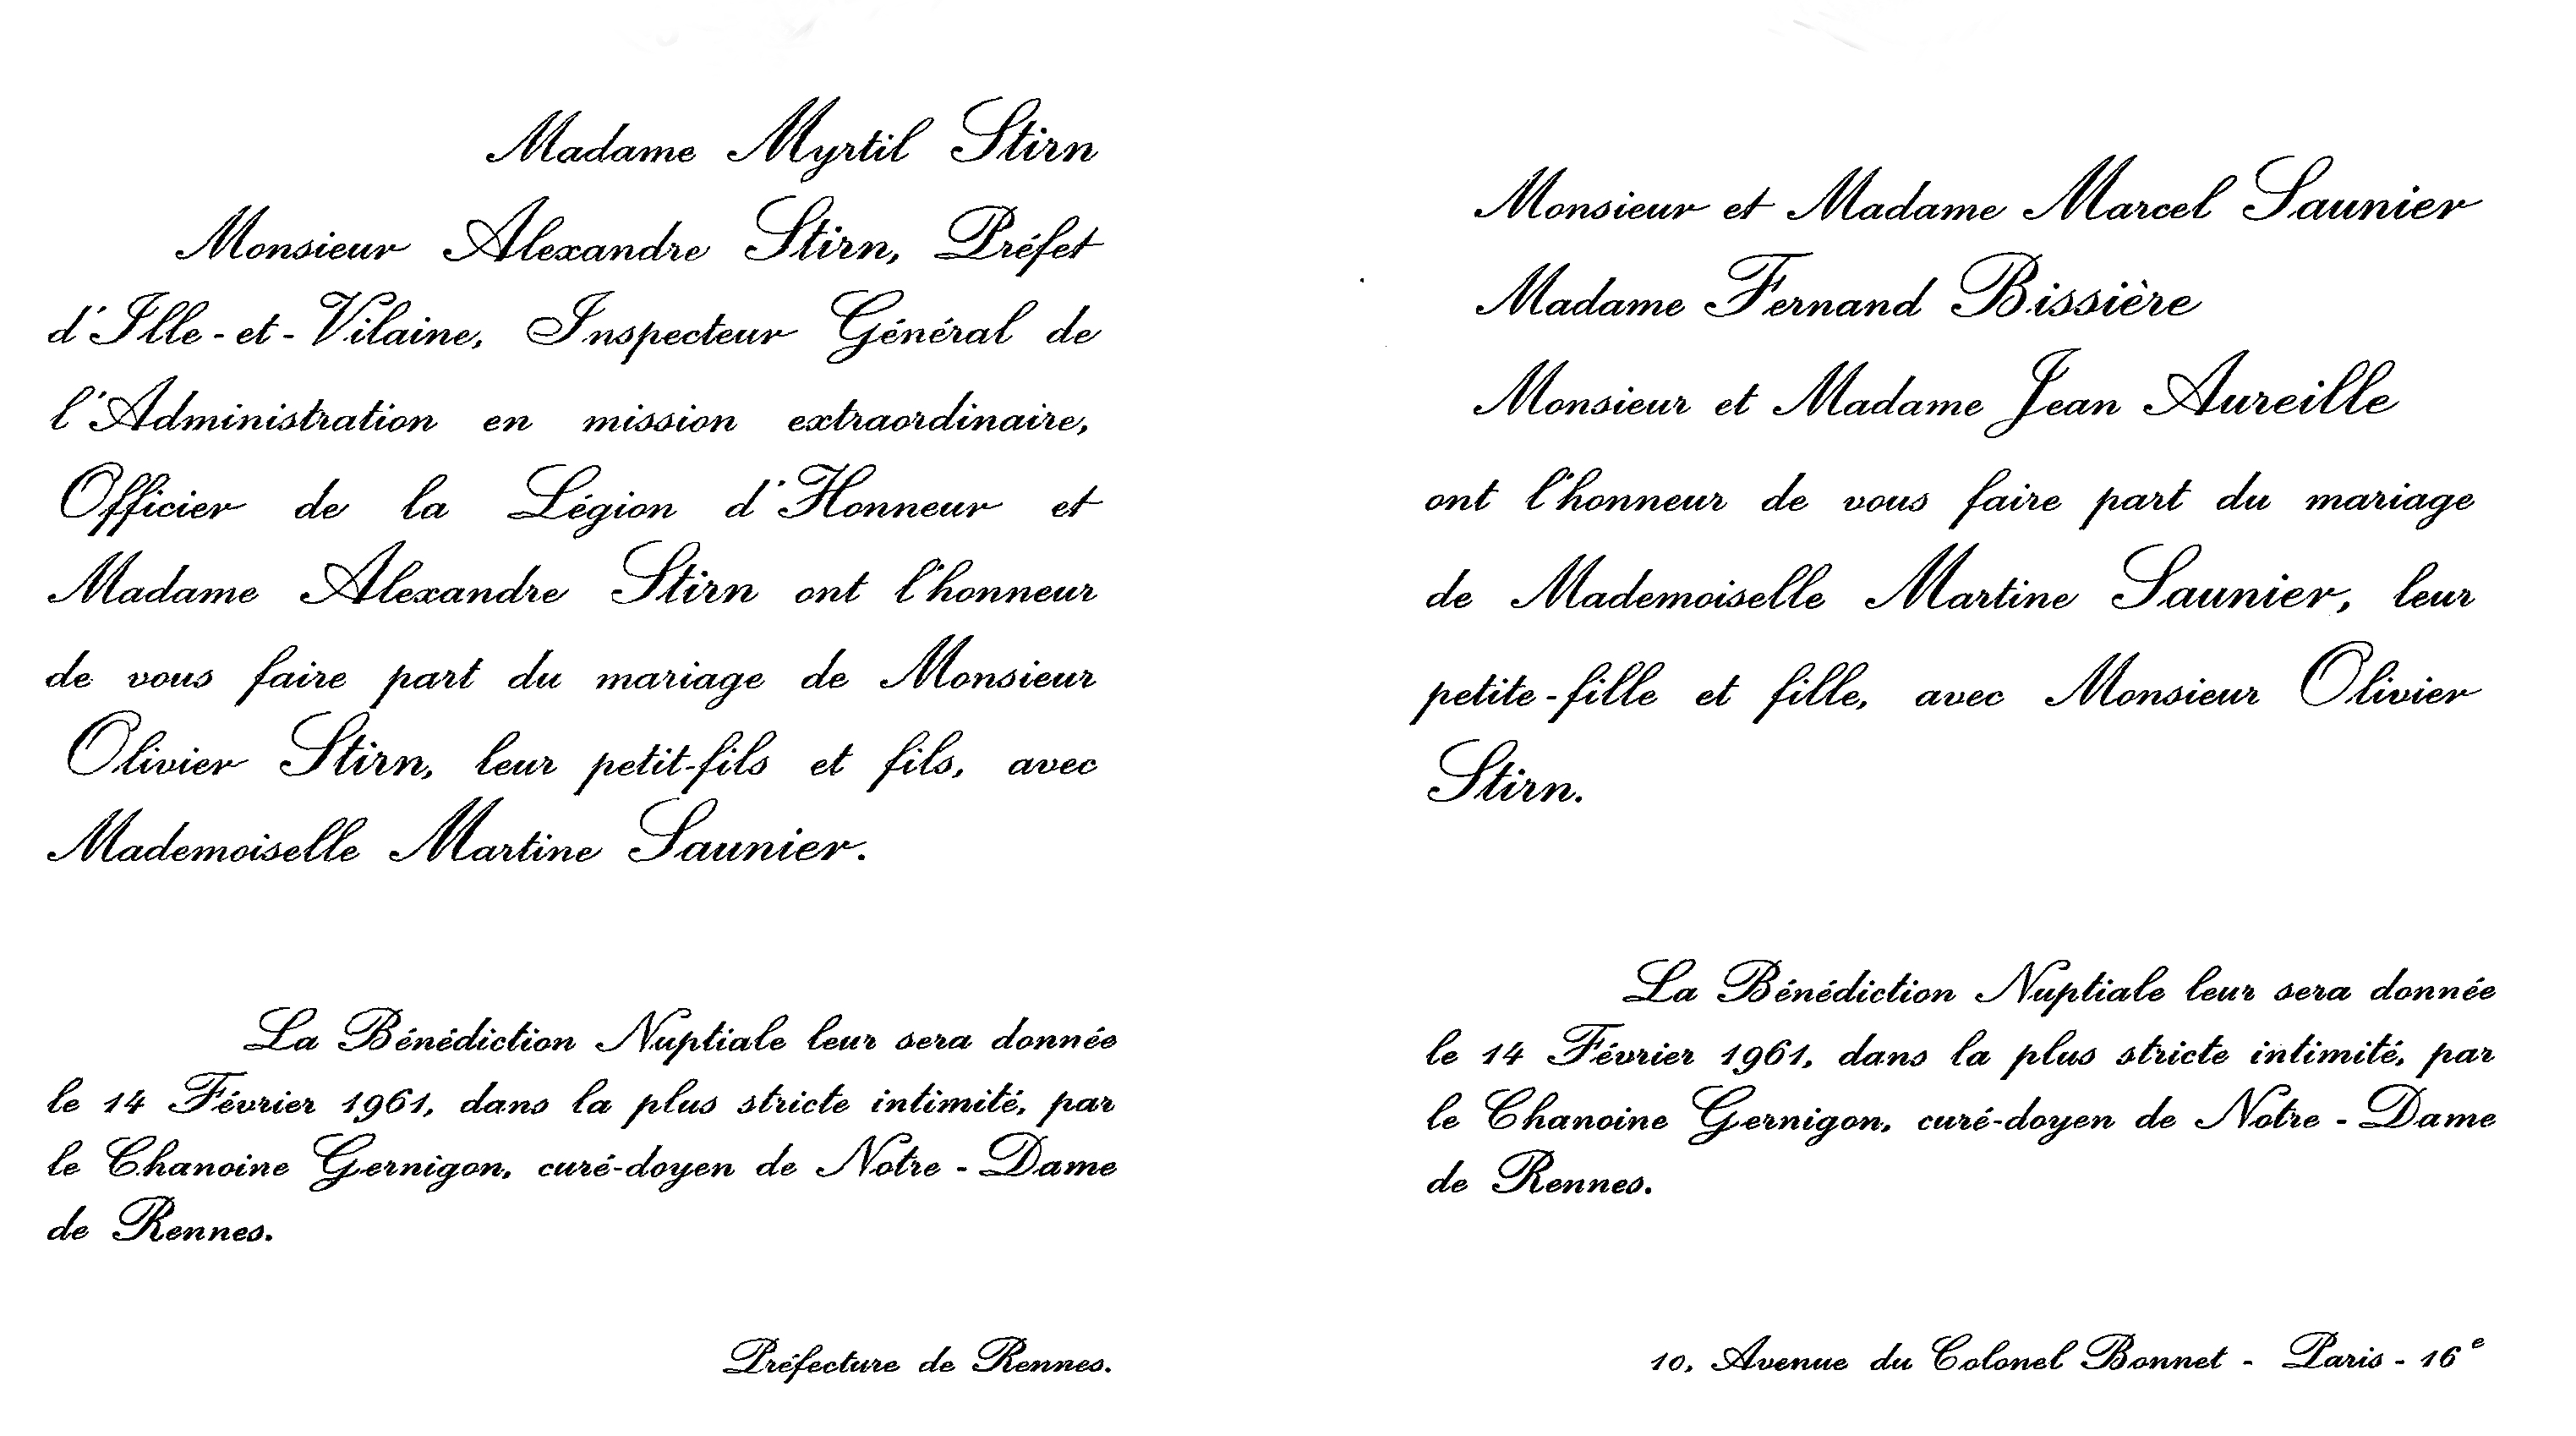 Madame Myrtil Stirn
Monsieur Alexandre Stirn, Préfet
d'Ille-et-Vilaine, Inspecteur Général de
l'Administration en mission extraordinaire,
Officier de la Légion d'Honneur et
Madame Alexandre Stirn ont l'honneur
de vous faire part du mariage de Monsieur
Olivier Stirn, leur petit-fils et fils, avec
Mademoiselle Martine Saunier.
La Bénédiction Nuptiale leur sera donnée
le 14 Février 1961, dans la plus stricte intimité, par
le Chanoine Gernigon, curé-doyen de Notre-Dame
de Rennes.
Préfecture de Rennes.
Monsieur et Madame Marcel Saunier
Madame Fernand Bissière
Monsieur et Madame Jean Aureille
ont l'honneur de vous faire part du mariage
de Mademoiselle Martine Saunier, leur
petite-fille et fille, avec Monsieur Olivier
Stirn.
La Bénédiction Nuptiale leur sera donnée
le 14 Février 1961, dans la plus stricte intimité, par
le Chanoine Gernigon, curé-doyen de Notre-Dame
de Rennes.
10, Avenue du Colonel Bonnet - Paris - 16e